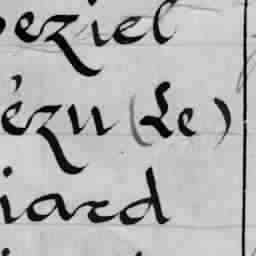 eziel
ézu (Le)
iard